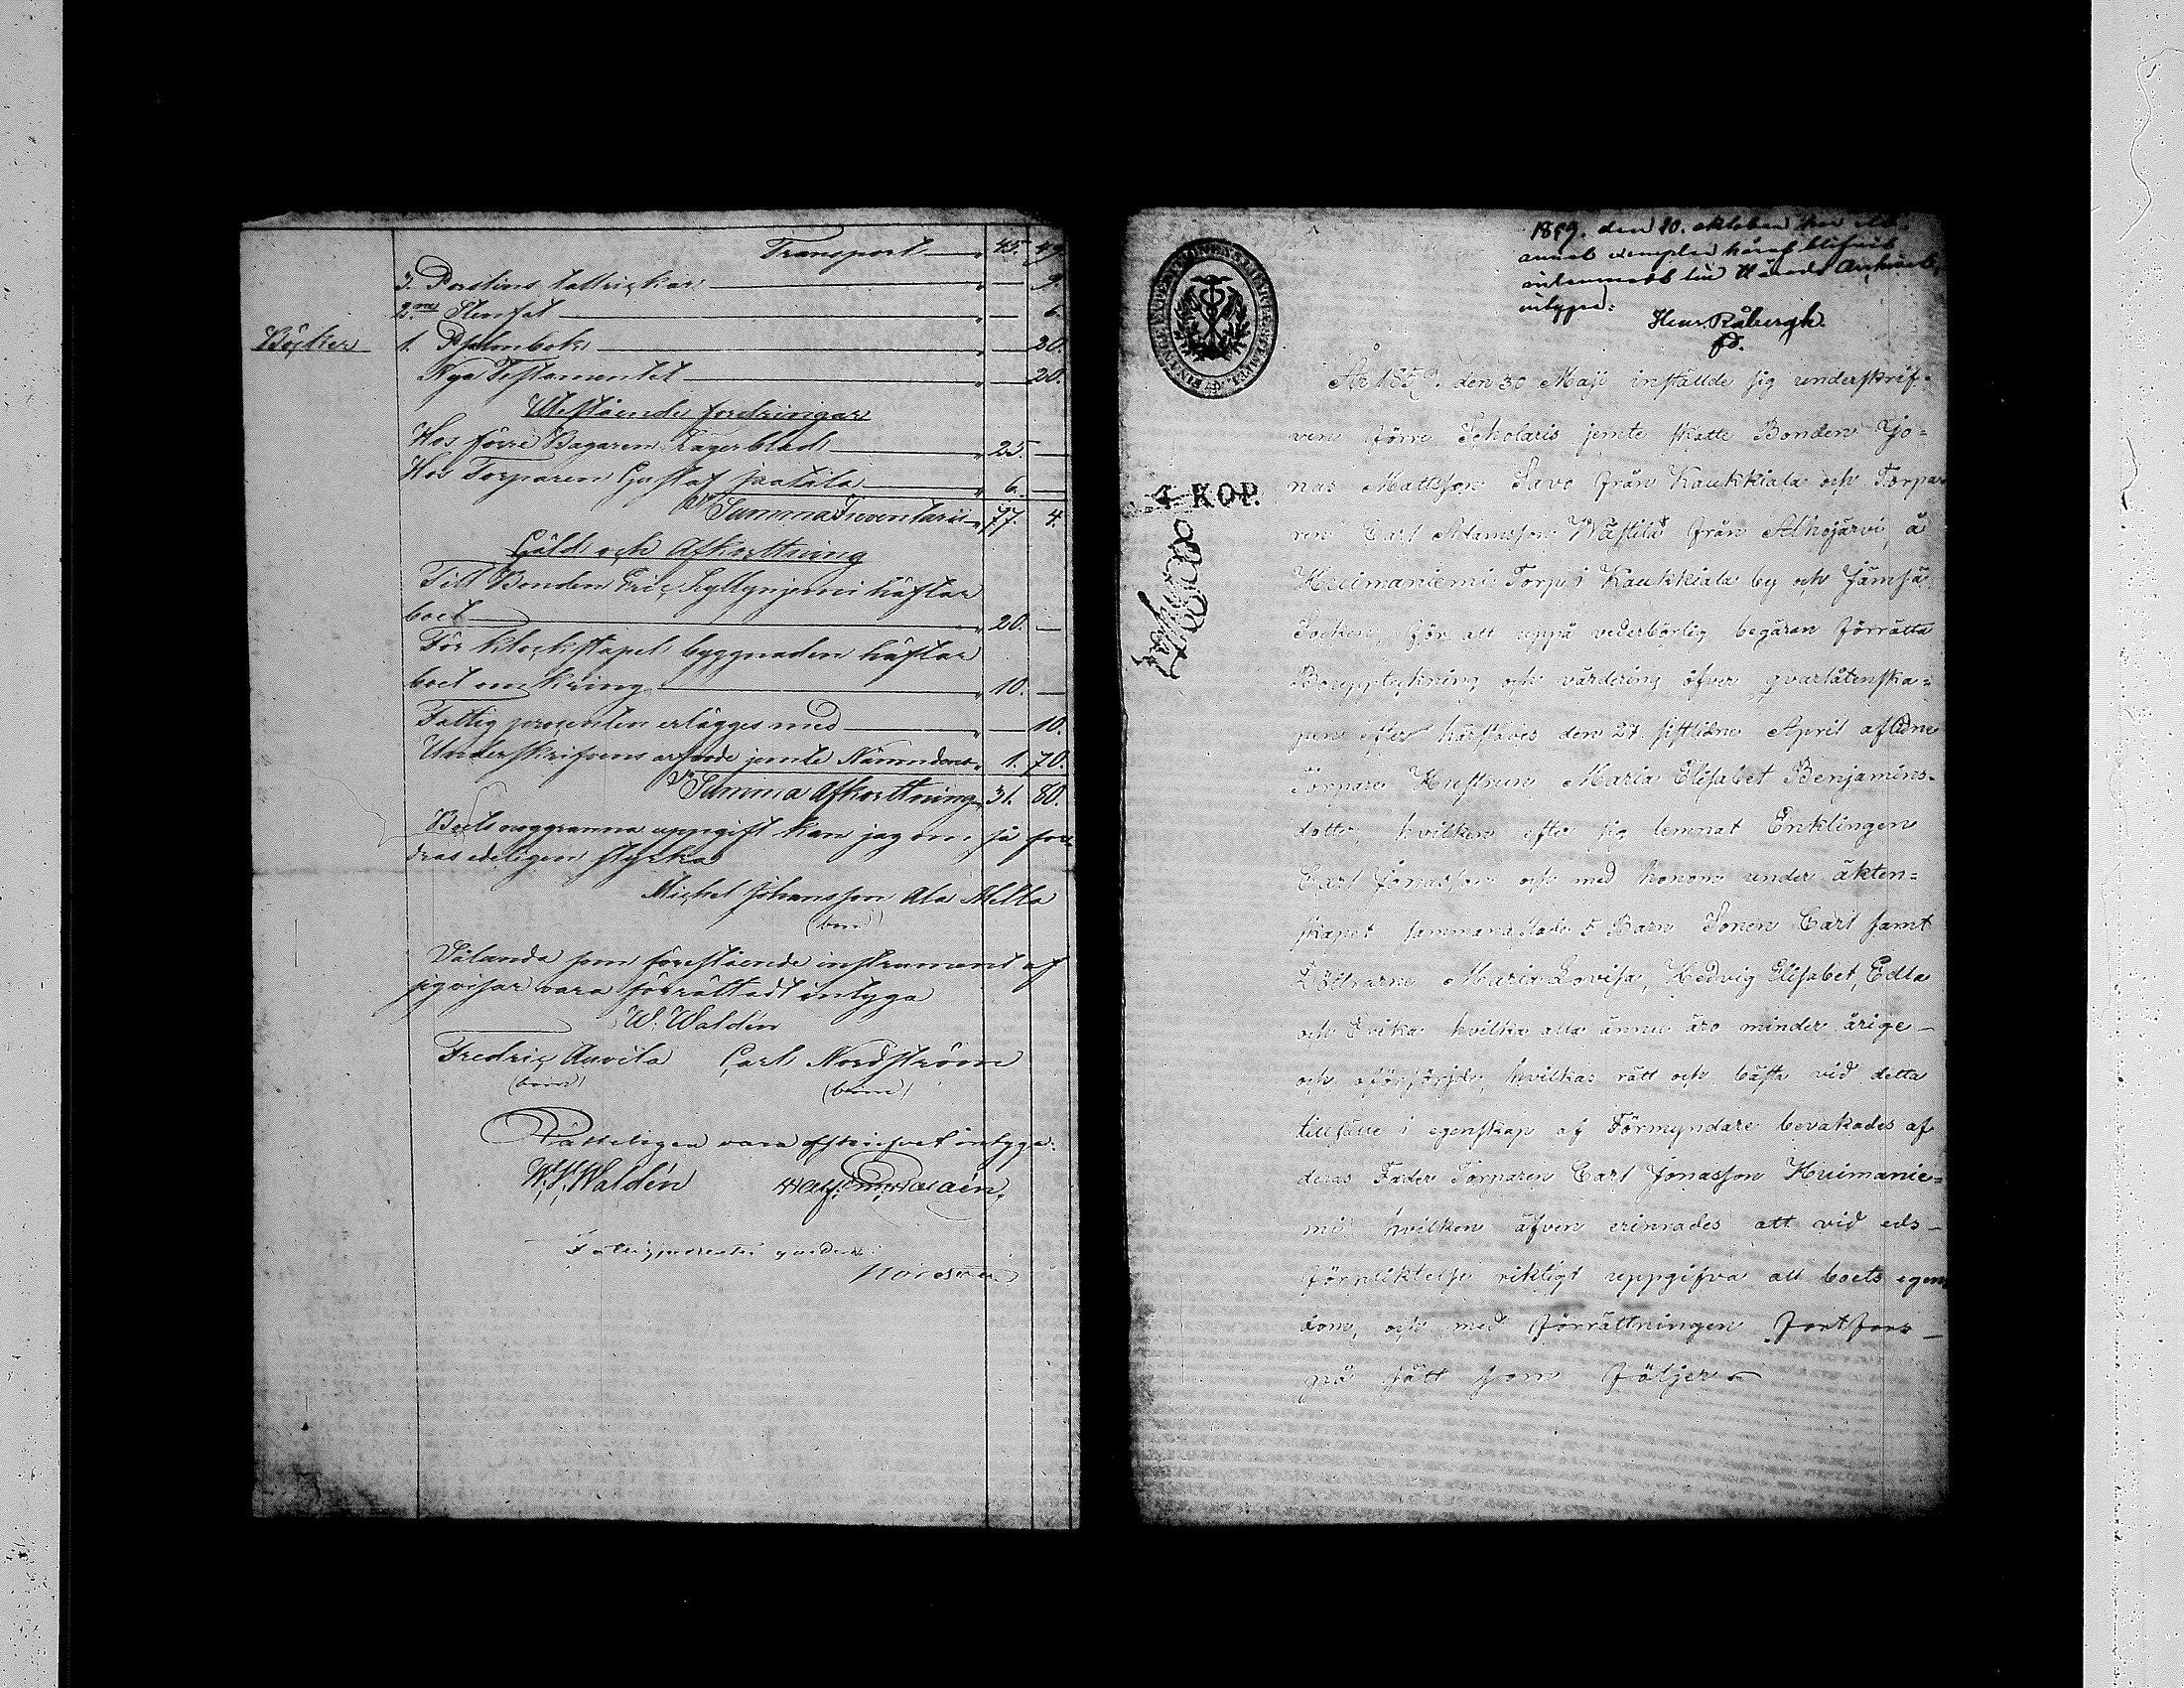 Transport 45. 49.
3. Postlins tallrickar 9.
2ne Stenfat 6.
Böcker 1. Psalmbok 20.
Nya Testamentet 20.
Utestående fordringar
Hos förre Bagaren Lagerblad 25. —
Hos Torparen Gustaf 6. —
Summa Inventarii 77. 4.
Gäld och Afkorttning
Till Bonden Eric häftar
boet 20. —
För klockstapel byggnaden häftar
boet omkring 10. —
Fattig procenten erlägges med 10.
Underskrifvens arfvode jemte Nämndens 1. 70.
Summa Afkorttning 31. 80.
Boets noggranna uppgift kan jag om så for-
dras edeligen styrka
Michel Johansson Ala Mella
(bom)
Sålunda som förestående instrument af
sig visar vara förrättadt intyga
W. Waldén
Fredric Auvila Carl Nordström
(bom) (bom)
Rätteligen vara afskrifvet intyga:
W. Waldén
Fattigprocenten
1859. den 10. oktober har ett
annat exemplar häraf blifvit
inlemnadt till Härads Archivet,
intygar:
Henr. Råbergh.
4 KOP.
År 1859. den 30 Maji inställde sig underskrif-
ven förre Scholaris jemte skatte Bonden Jo=
nas Mattsson Savo från Kaukkiala och Torpa-
ren Carl Adamsson Wästilä från Alhojärvi, å
Huimaniemi Torp i Kaukkiala by och Jämsä
Socken, för att uppå vederbörlig begäran förrätta
Bouppteckning och värdering öfver qvarlåtenska=
pen efter härstädes den 27. sistlidne April aflidne
Torpare Hustrun Maria Elisabet Benjamins-
dotter, hvilken efter sig lemnat Enklingen
Carl Jonasson och med honom under äkten=
skapet sammanaflade 5 Barn Sonen Carl samt
Döttrarne Maria Lovisa, Hedvig Elisabet, Edla
och Erika hvilka alla ännu äro minder årige
och oförsörjde, hvilkas rätt och bästa vid detta
tillfälle i egenskap af Förmyndare bevakades af
deras Fader Torparen Carl Jonasson Huimanie=
mi hvilken äfven erinrades att vid eds-
förpliktelse riktigt uppgifva all boets egen
dom, och med förrättningen fortfors
på sätt som följer